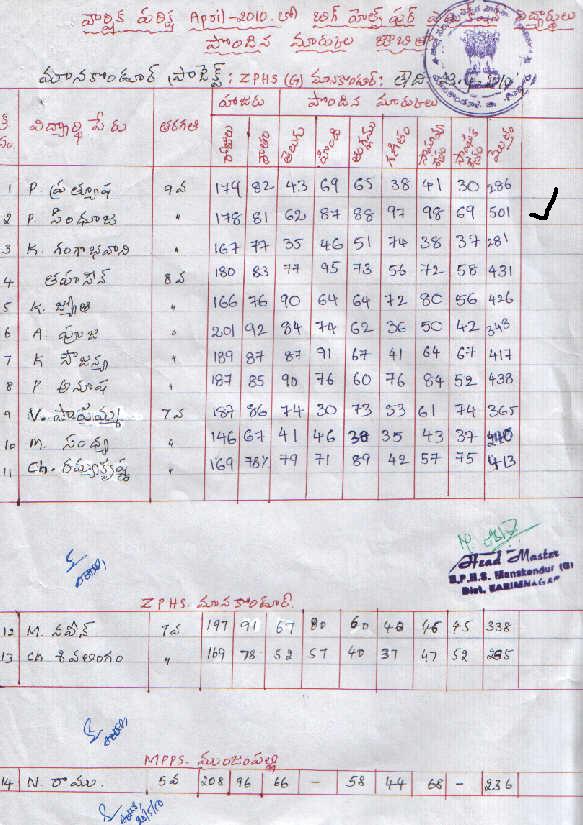 వార్షిక పరీక్ష April-2010. లో బిగ్ హెల్ప్ ఫర్ విద్యార్థులు
పొందిన మార్కుల
మానకొండూర్ ప్రాజెక్ట్: ZPHS (G) మానకొండూర్:
హాజరు పొందిన మార్కులు
విద్యార్థి పేరు తరగతి హాజరు శాతం తెలుగు హిందీ ఇంగ్లీషు గణితం మొత్తం
1 P. ప్రత్యూష 9వ 179 82 43 69 65 38 41 30 286
2 P. సింధూజ " 178 81 62 87 88 97 98 69 501
3 K. గంగాభవాని " 167 77 35 46 51 74 38 37 281
4 తహసీన్ 8వ 180 83 77 95 73 56 72 58 431
5 K. జ్యోతి " 166 76 90 64 64 72 80 56 426
6 A. పూజ " 201 92 84 74 62 36 50 42 348
7 K సౌజన్య " 189 87 87 91 67 41 64 67 417
8 P అనూష " 187 85 90 76 60 76 84 52 438
9 N. పోషమ్మ 7వ 187 86 74 30 73 53 61 74 365
10 M. సంధ్య " 146 67 41 46 38 35 43 37 240
11 Ch. రమ్యకృష్ణ " 169 78% 79 71 89 42 57 75 413
Head Master
Z.P.H.S. Manakondur (G)
Dist. KARIMNAGAR
ZPHS. మానకొండూర్.
12 M. నవీన్ 7వ 197 91 67 80 60 46 46 45 338
13 Ch. శివలింగం " 169 78 52 57 40 37 47 52 285
MPPS. ముంజంపల్లి
14 N. రాము. 5వ 208 96 66 - 58 44 68 - 236